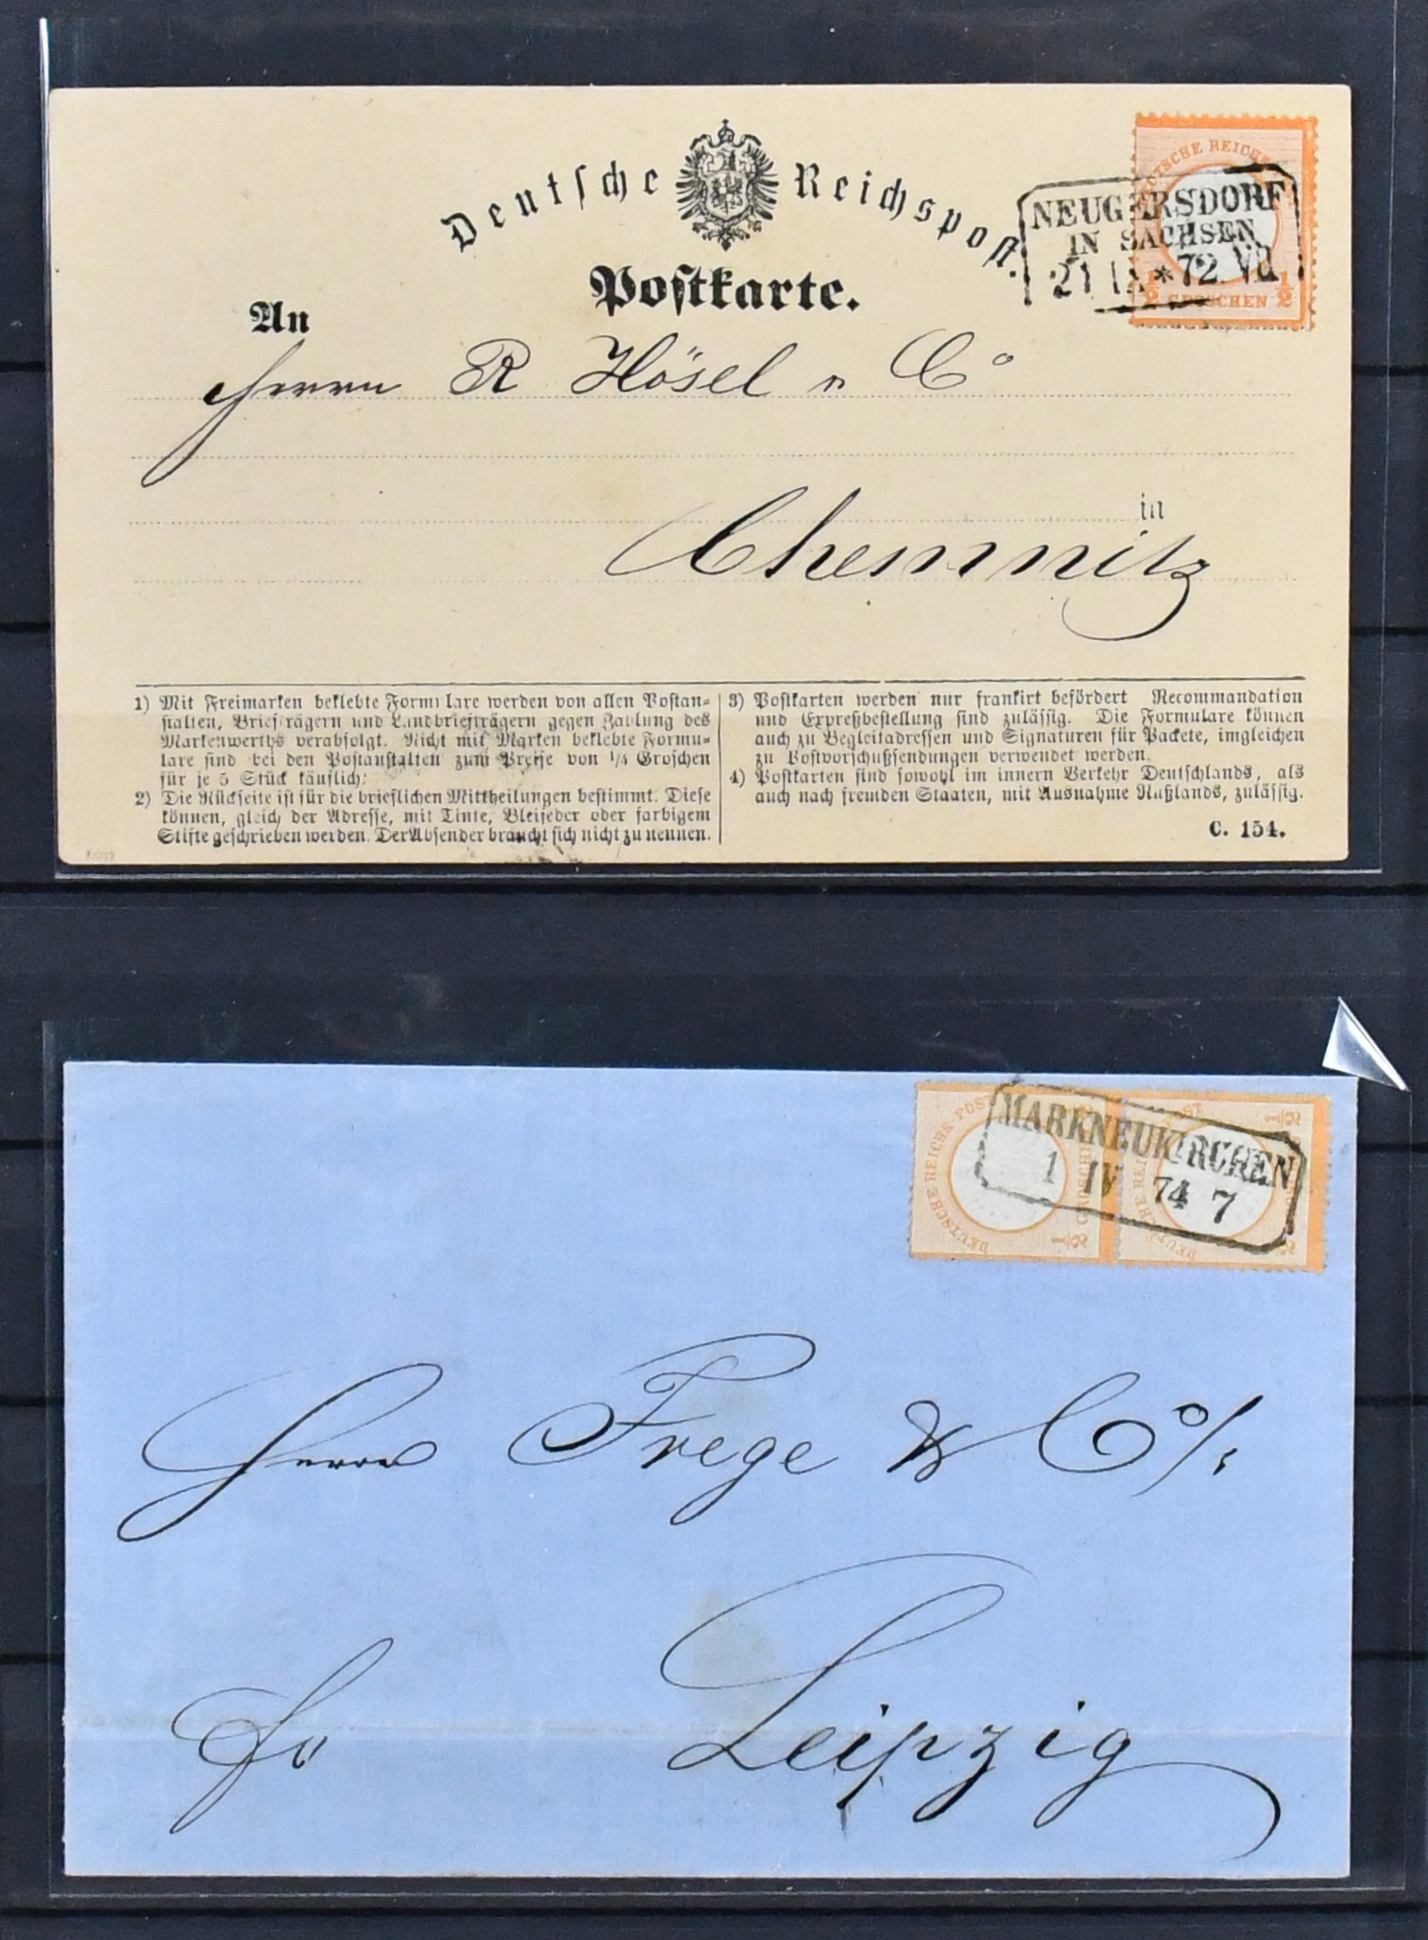 Deutſche Reichspoſt.
Poſtkarte.
DEUTSCHE REICHS
½ GROSCHEN ½
NEUGERSDORF
IN SACHSEN
21 IX * 72. VII
An
Herrn R Hösel u Co
in
Chemnitz
1) Mit Freimarken beklebte Formulare werden von allen Poſtan-
ſtalten, Briefträgern und Landbriefträgern gegen Zahlung des
Markenwerths verabfolgt. Nicht mit Marken beklebte Formu-
lare ſind bei den Poſtanſtalten zum Preiſe von ¼ Groſchen
für je 5 Stück käuflich:
2) Die Rückſeite iſt für die brieflichen Mittheilungen beſtimmt. Dieſe
können, gleich der Adreſſe, mit Tinte, Bleifeder oder farbigem
Stifte geſchrieben werden. Der Abſender braucht ſich nicht zu nennen.
3) Poſtkarten werden nur frankirt befördert Recommandation
und Expreßbeſtellung ſind zuläſſig. Die Formulare können
auch zu Begleitadreſſen und Signaturen für Packete, imgleichen
zu Poſtvorſchußſendungen verwendet werden.
4) Poſtkarten ſind ſowohl im innern Verkehr Deutſchlands, als
auch nach fremden Staaten, mit Ausnahme Rußlands, zuläſſig.
C. 154.
DEUTSCHE REICHS POST
½ GROSCHEN ½
MARKNEUKIRCHEN
1 IV 74 7
Herrn Frege & Co/:
Leipzig